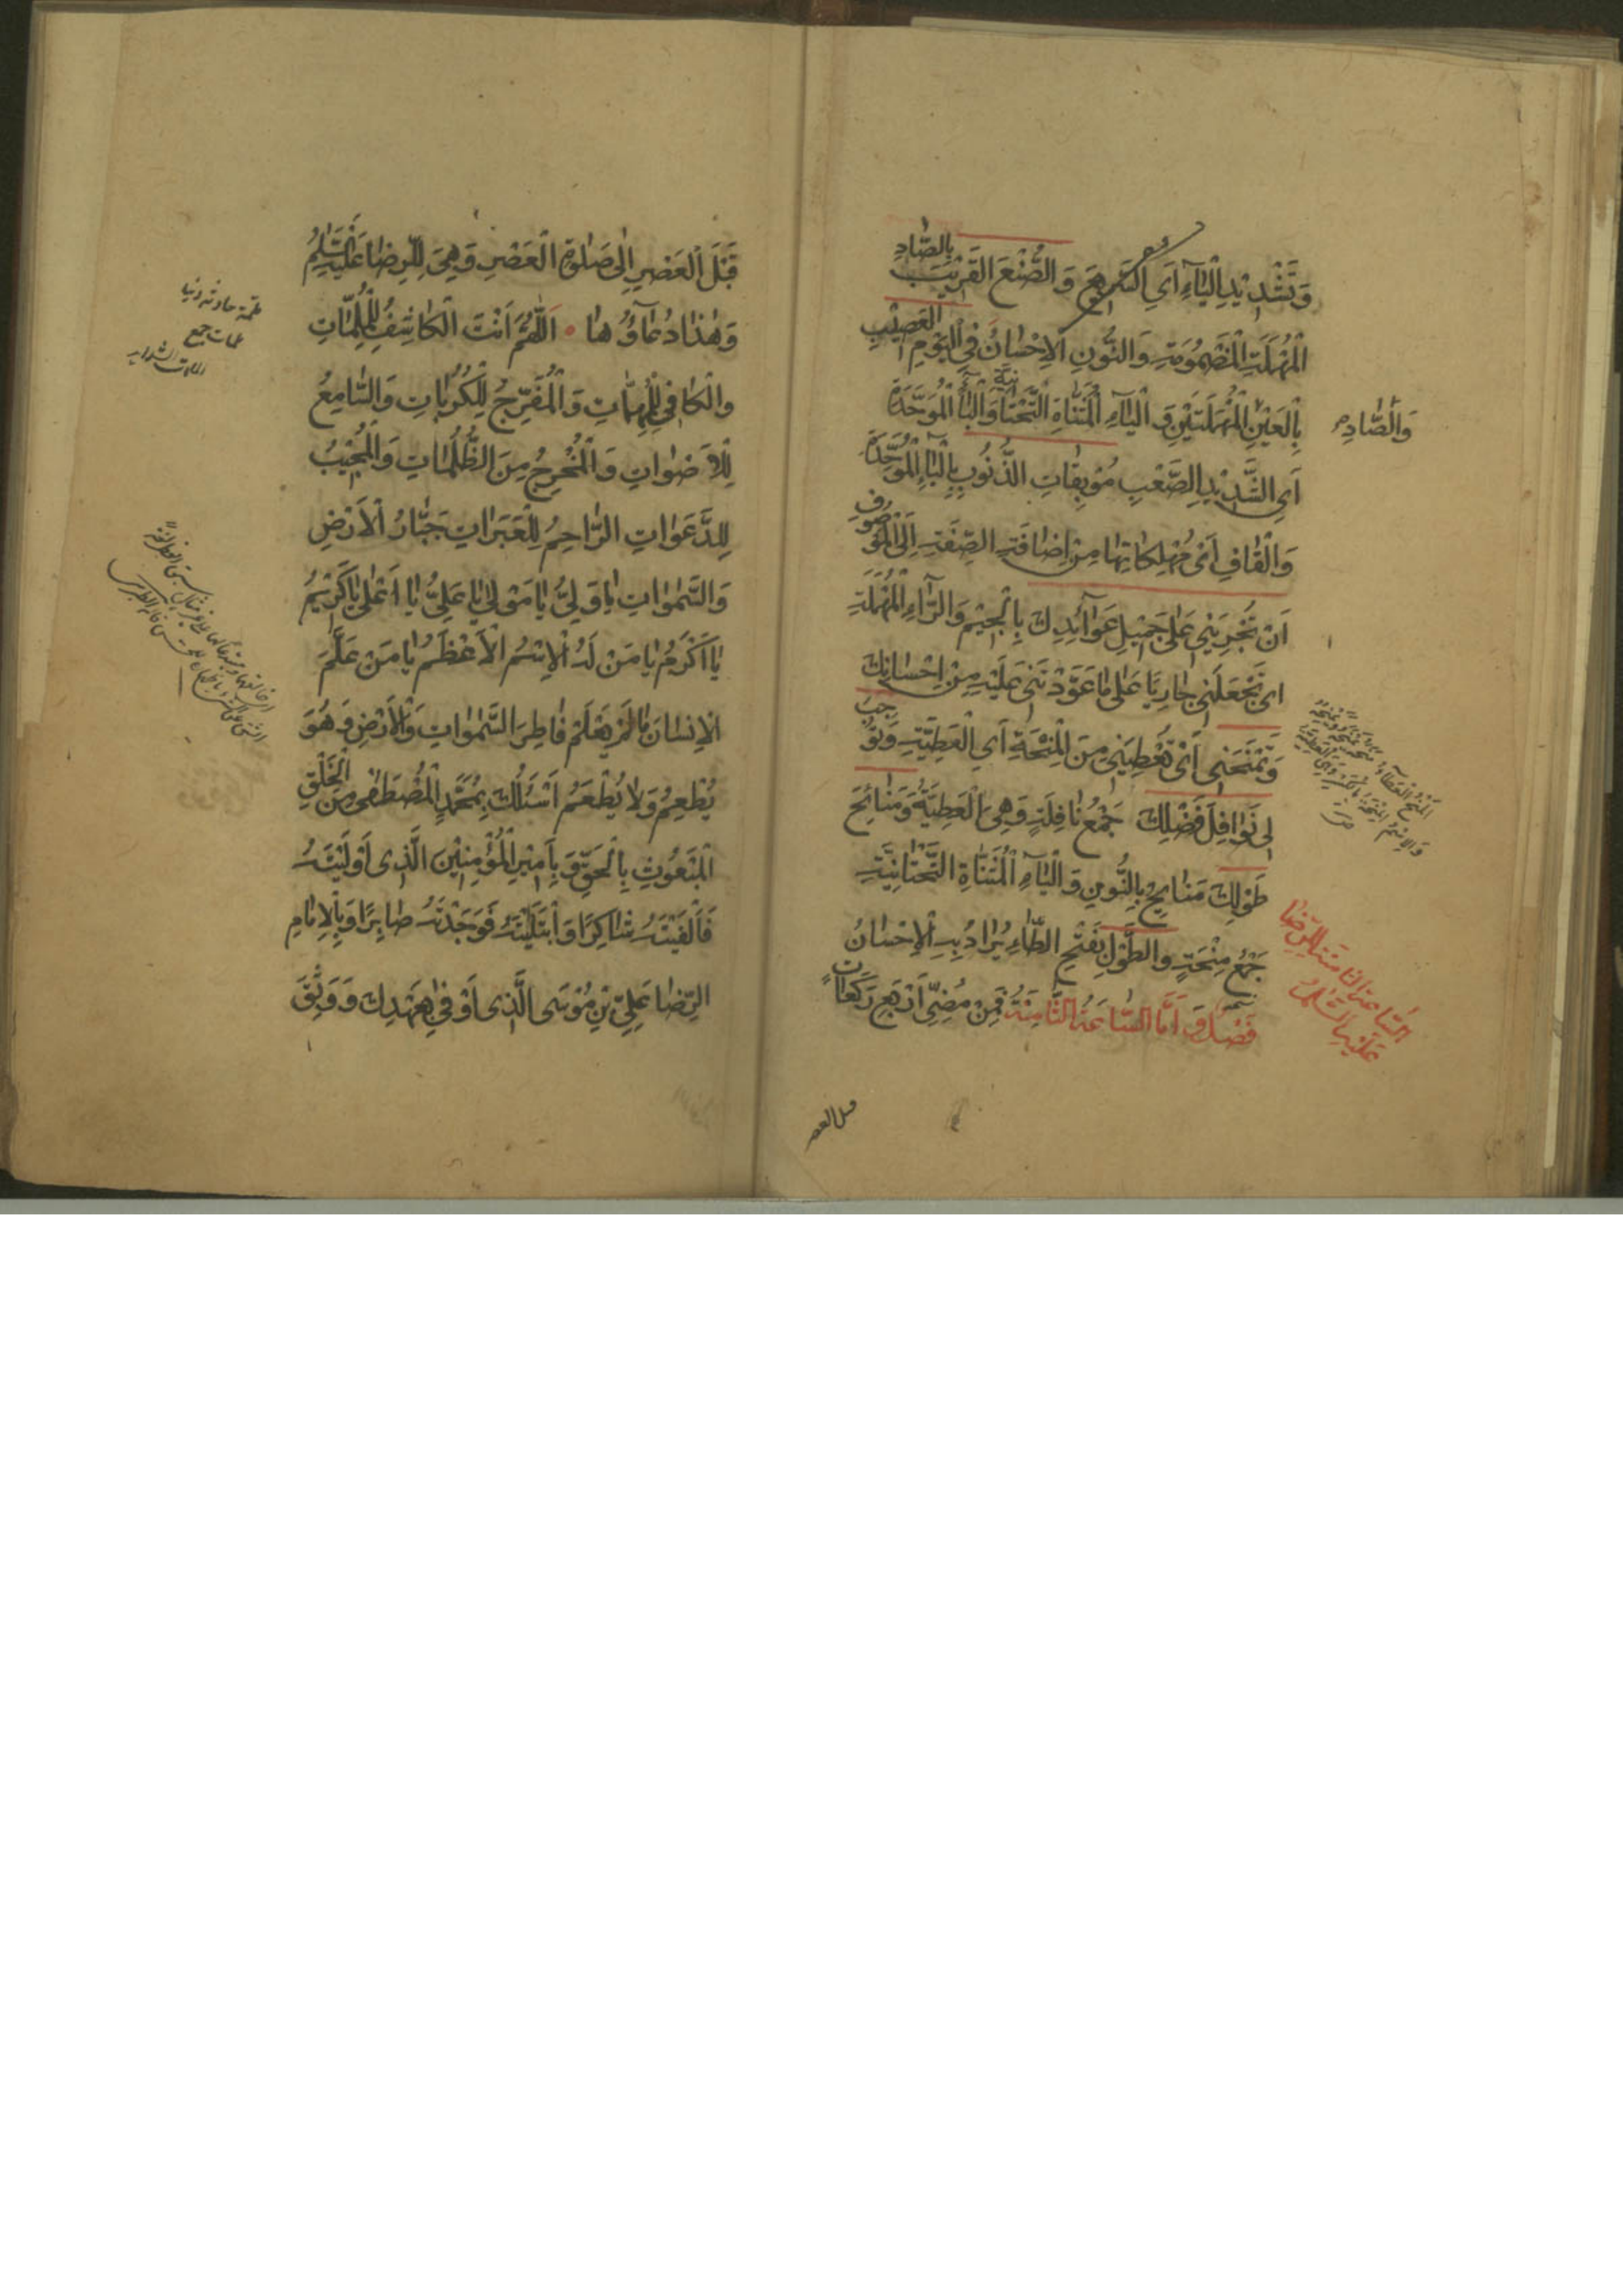 وَتَشْدِيْدِ الْيَاءِ اَيِ السَّرِيْعَ وَ الصُّنْعَ الْقَرِيْبَ بِالصَّادِ
الْمُهْمَلَةِ الْمَضْمُوْمَةِ وَالنُّوْنِ الْاِحْسَانُ فِى الْيَوْمِ الْعَصِيْبِ
بِالْعَيْنِ الْمُهْمَلَتَيْنِ وَ الْيَاءِ الْمُثَنَّاةِ التَّحْتَانِيَّةِ وَالْبَاءِ الْمُوَحَّدَةِ
وَالصَّادِ
اَيِ الشَّدِيْدِ الصَّعْبِ مُوْبِقَاتِ الذُّنُوْبِ بِالْبَاءِ الْمُوَحَّدَةِ
وَالْقَافِ اَىْ مُهْلِكَاتِهَا مِنْ اِضَافَةِ الصِّفَةِ اِلَى الْمَوْصُوْفِ
اَنْ تُجْرِيَنِىْ عَلٰى جَمِيْلِ عَوَآئِدِكَ بِالْجِيْمِ وَالرَّاءِ الْمُهْمَلَةِ
اى تَجْعَلَنِى جَارِيًا عَلٰى مَا عَوَّدْتَنِى عَلَيْهِ مِنْ اِحْسَانِكَ
وَتَمْنَحَنِى اَىْ تُعْطِيَنِىْ مِنَ الْمِنْحَةِ اَيِ الْعَطِيَّةِ وَتُوْجِبَ
لِى نَوَافِلَ فَضْلِكَ جَمْعُ نَافِلَةٍ وَهِىَ الْعَطِيَّةُ وَمَنَائِحَ
طَوْلِكَ مَنَايِحُ بِالنُّوْنِ وَالْيَاءِ الْمُثَنَّاةِ التَّحْتَانِيَّةِ
جَمْعُ مِنْحَةٍ وَالطَّوْلِ بِفَتْحِ الطَّاءِ يُرَادُ بِهِ الْاِحْسَانُ
فَصْلٌ وَ اَمَّا السَّاعَةُ الثَّامِنَةُ فَمِنْ مُضِىِّ اَرْبَعِ رَكَعَاتٍ
السَّاعَة الثامنة للرضا
عَلَيْهِ السَّلَامُ
قبل العصر
قَبْلَ الْعَصْرِ اِلٰى صَلٰوةِ الْعَصْرِ وَهِىَ لِلرِّضَا عَلَيْهِ السَّلَامُ
وَهٰذَا دُعَآؤُهَا اَللّٰهُمَّ اَنْتَ الْكَاشِفُ لِلْمُلِمَّاتِ
وَالْكَافِى لِلْمُهِمَّاتِ وَالْمُفَرِّجُ لِلْكُرُبَاتِ وَالسَّامِعُ
لِلْاَصْوَاتِ وَالْمُخْرِجُ مِنَ الظُّلُمَاتِ وَالْمُجِيْبُ
لِلدَّعَوَاتِ الرَّاحِمُ لِلْعَبَرَاتِ جَبَّارُ الْاَرْضِ
وَالسَّمٰوَاتِ يَا وَلِىُّ يَا مَوْلٰى يَا عَلِىُّ يَا اَعْلٰى يَا كَرِيْمُ
يَا اَكْرَمُ يَا مَنْ لَهُ الْاِسْمُ الْاَعْظَمُ يَا مَنْ عَلَّمَ
الْاِنْسَانَ مَا لَمْ يَعْلَمْ فَاطِرَ السَّمٰوَاتِ وَالْاَرْضِ وَهُوَ
يُطْعِمُ وَلَا يُطْعَمُ اَسْئَلُكَ بِمُحَمَّدٍ الْمُصْطَفٰى مِنَ الْخَلْقِ
الْمَبْعُوْثِ بِالْحَقِّ وَ بِاَمِيْرِ الْمُؤْمِنِيْنَ الَّذِى اَوْلَيْتَهُ
فَاَلْفَيْتَهُ شَاكِرًا وَ ابْتَلَيْتَهُ فَوَجَدْتَهُ صَابِرًا وَبِالْاِمَامِ
الرِّضَا عَلِىِّ بْنِ مُوْسَى الَّذِى اَوْفٰى بِعَهْدِكَ وَ وَثِقَ